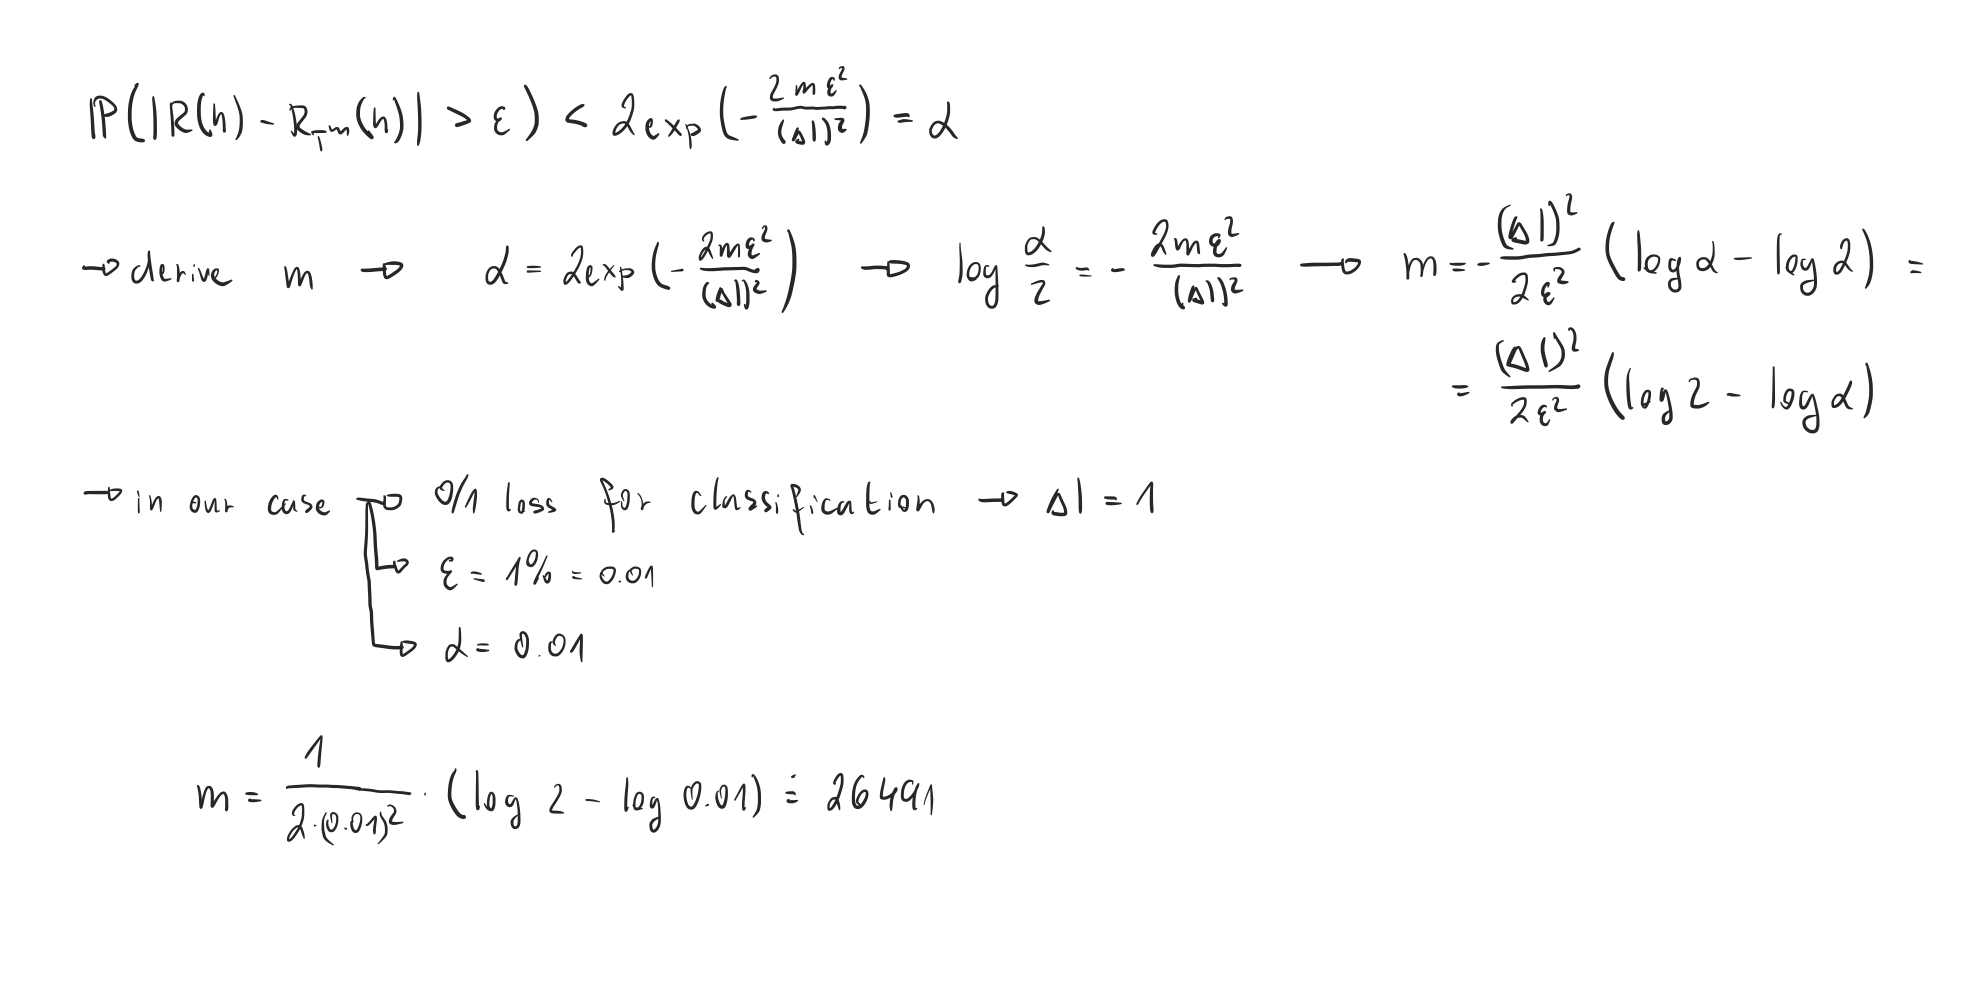 ℙ(|R(h) - R_{T^m}(h)| > ε) < 2exp(-\frac{2mε²}{(Δl)²}) = α
→ derive m → α = 2exp(-\frac{2mε²}{(Δl)²}) → log \frac{α}{2} = -\frac{2mε²}{(Δl)²} → m = -\frac{(Δl)²}{2ε²} (log α - log 2) =
= \frac{(Δl)²}{2ε²} (log 2 - log α)
→ in our case → 0/1 loss for classification → Δl = 1
→ ε = 1% = 0.01
→ α = 0.01
m = \frac{1}{2·(0.01)²} · (log 2 - log 0.01) ≐ 26491